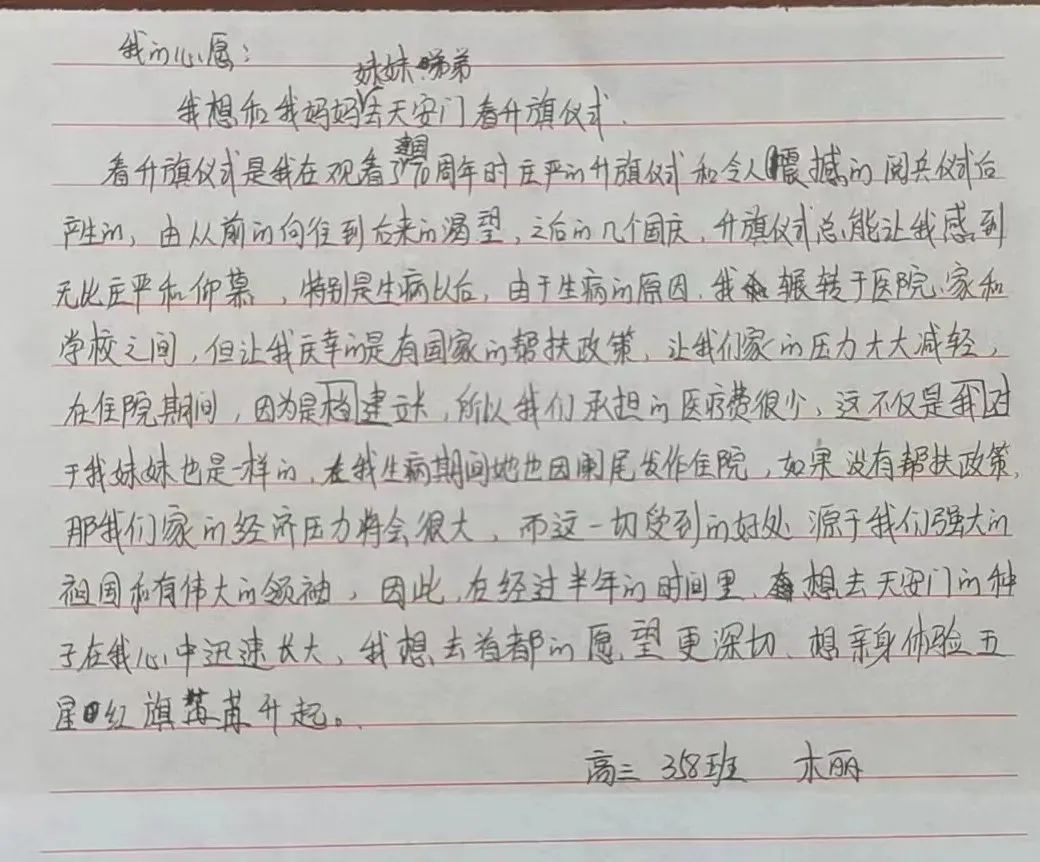 我的心愿：
我想和我妈妈妹妹弟弟去天安门看升旗仪式.
看升旗仪式是我在观看建国70周年时庄严的升旗仪式和令人震撼的阅兵仪式后
产生的，由从前的向往到后来的渴望，之后的几个国庆，升旗仪式总能让我感到
无比庄严和仰慕，特别是生病以后，由于生病的原因，我辗转于医院、家和
学校之间，但让我庆幸的是有国家的帮扶政策，让我们家的压力大大减轻，
在住院期间，因为是档建立卡，所以我们承担的医疗费很少，这不仅是我对
于我妹妹也是一样的，在我生病期间她也因阑尾发作住院，如果没有帮扶政策，
那我们家的经济压力将会很大，而这一切受到的好处 源于我们强大的
祖国和有伟大的领袖，因此，在经过半年的时间里，想去天安门的种
子在我心中迅速长大，我想去首都的愿望更深切、想亲身体验五
星红旗苒苒升起。
高三 358班 木丽